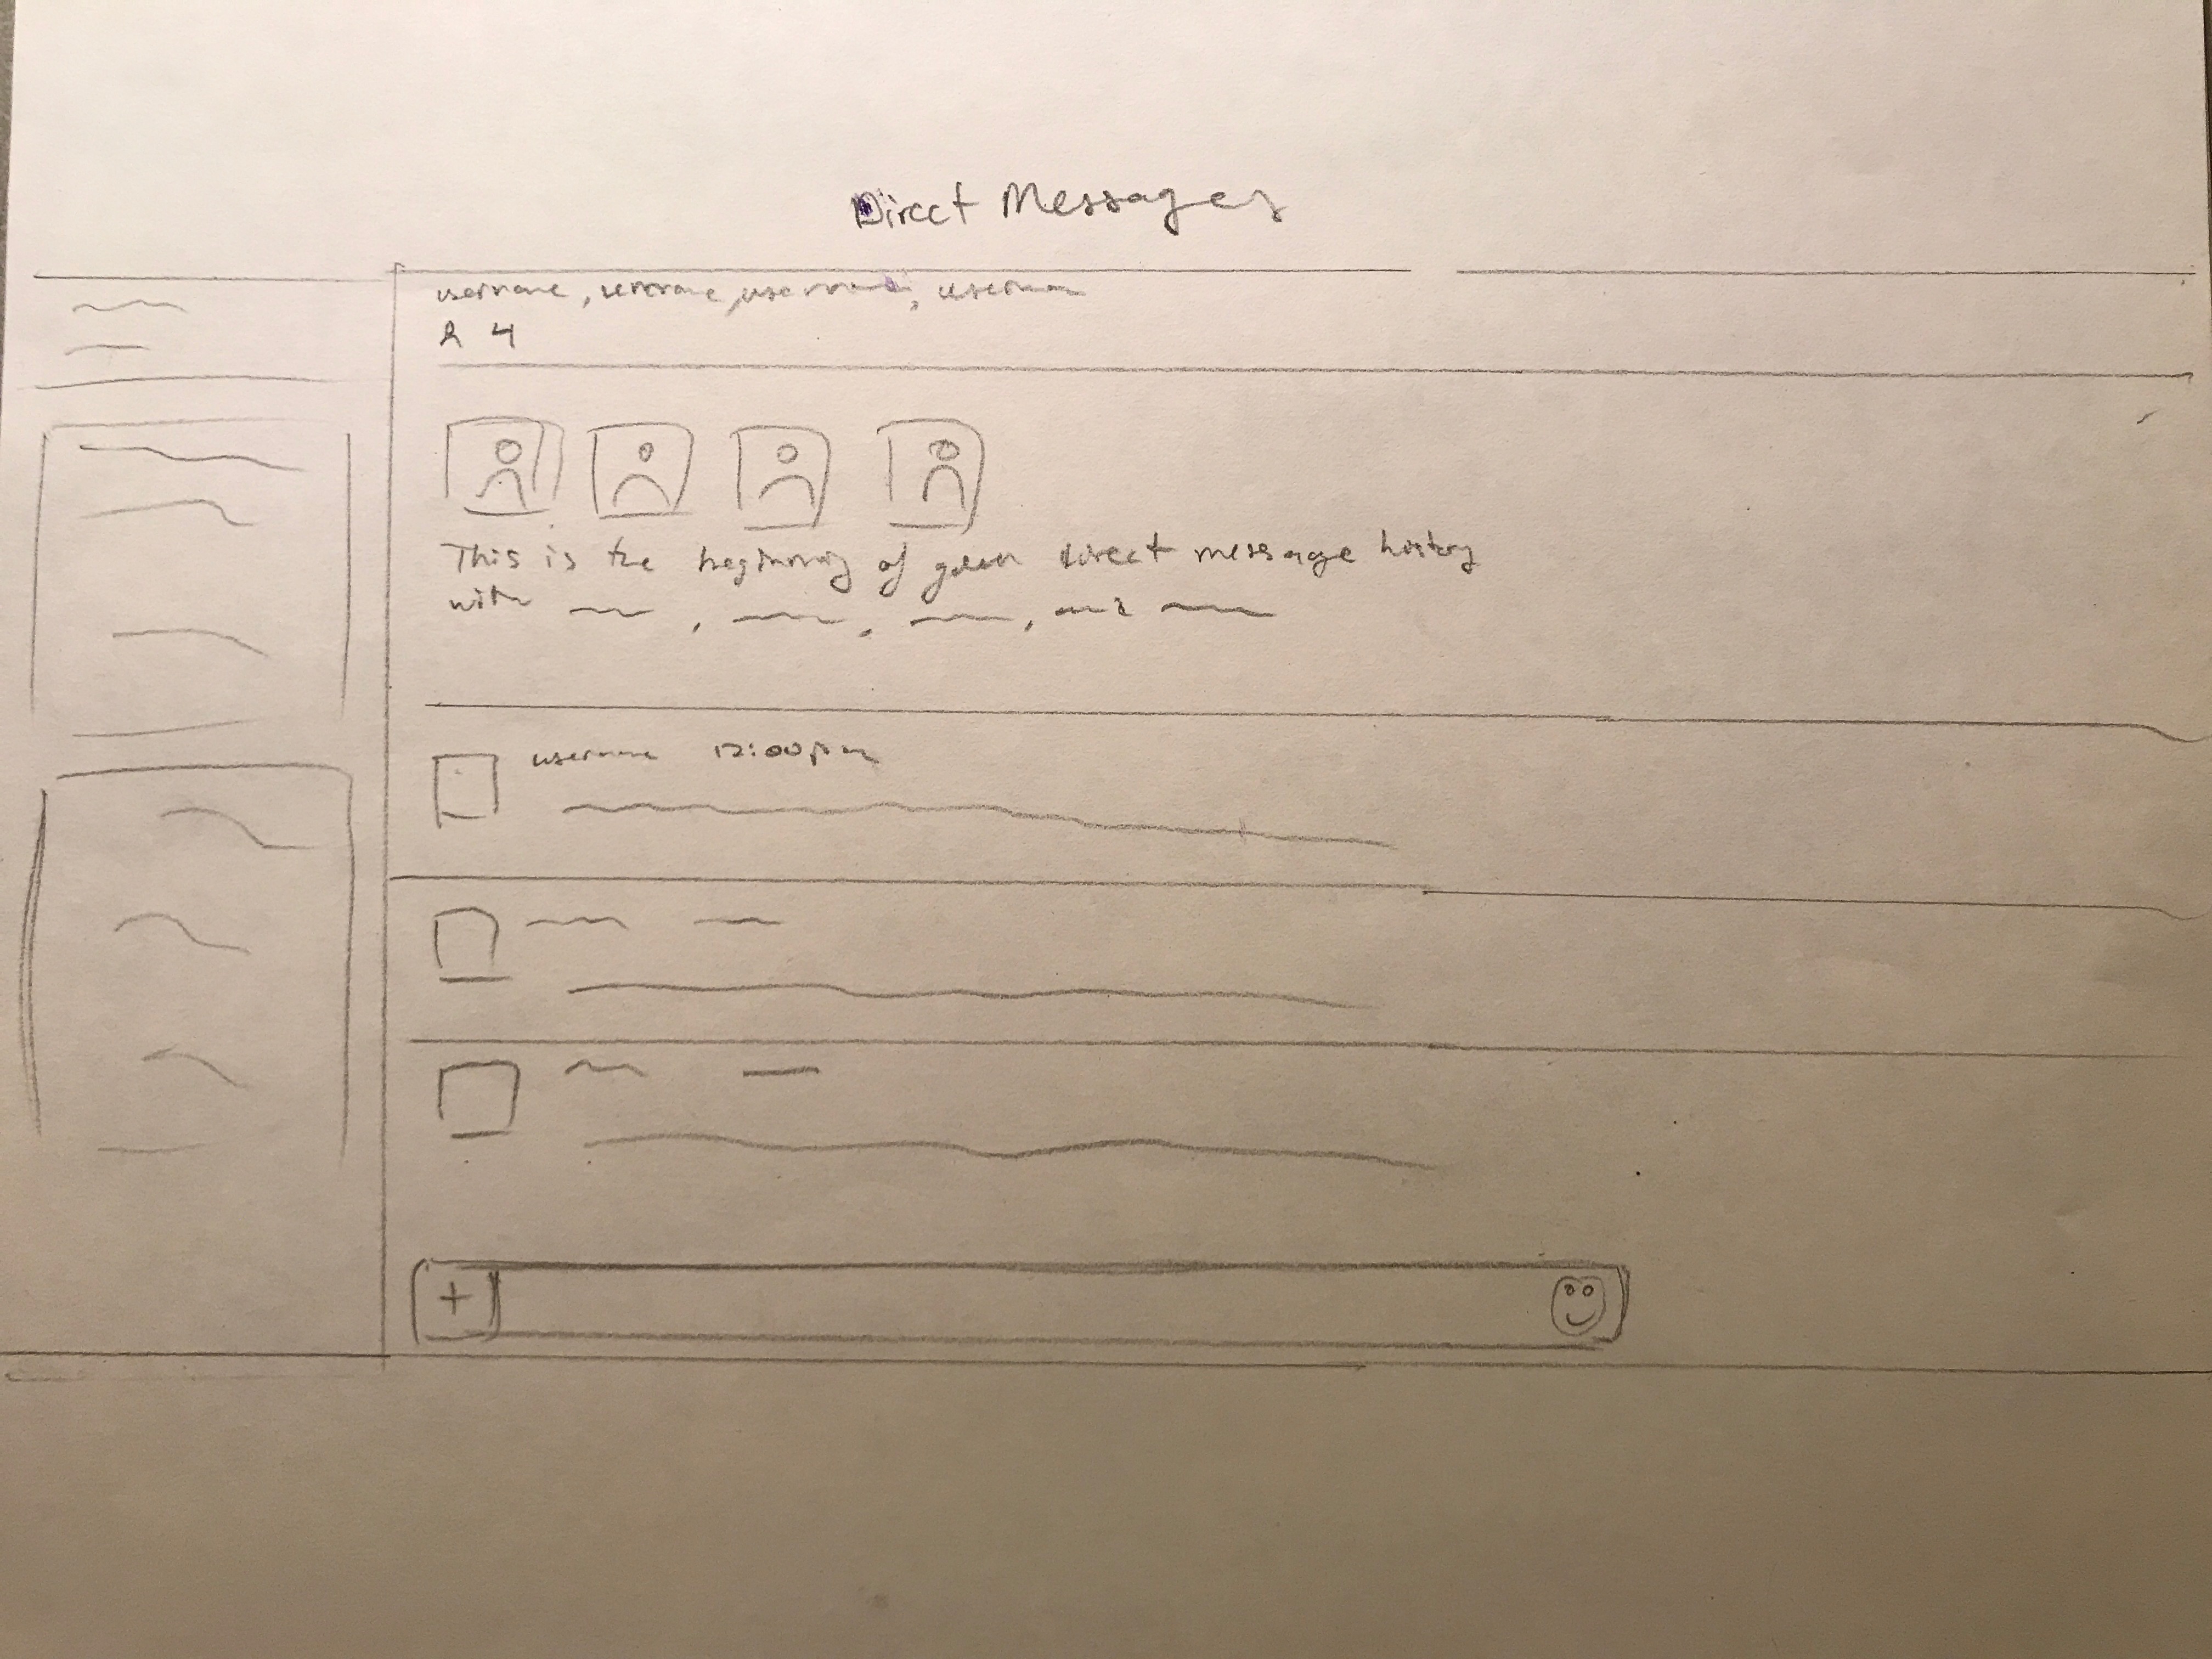 Direct Messages
username, username, username, usernam
4
This is the beginning of your direct message history
with , , , and
username 12:00pm
+